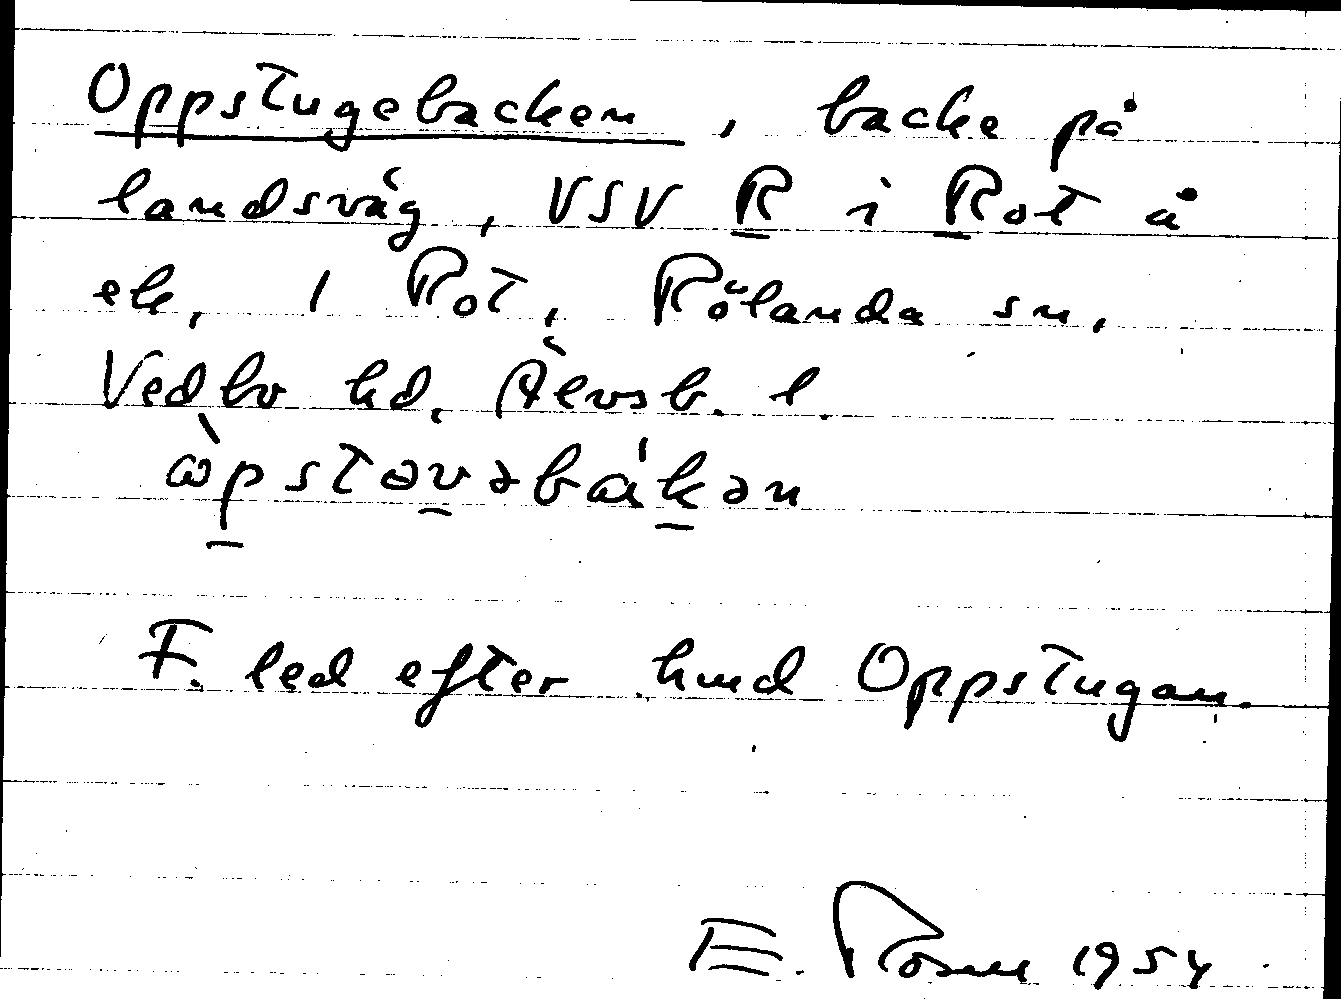 Oppstugebacken, backe på
landsväg, VSV R i Rot å
ek, 1 Rot, Rölanda sn,
Vedbo hd, Älvsb. l.
ὼpstɵvəbákən
F. led efter hmd Oppstugan.
E. Rosell 1954